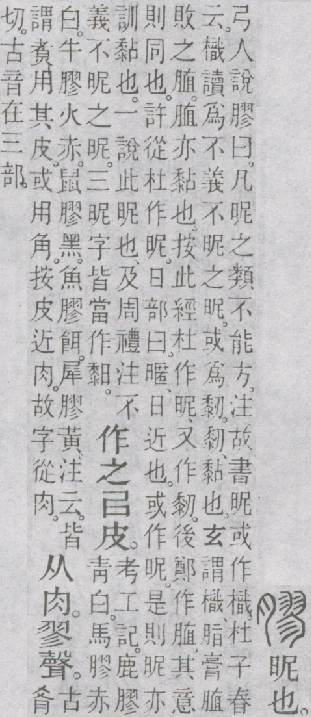 膠 昵也。
弓人說膠曰。凡昵之類不能方。注。故書昵或作樴。杜子春
云。樴讀爲不義不昵之昵。或爲䵑。䵑、黏也。玄謂樴脂膏䐈
敗之䐈。䐈亦黏也。按此經杜作昵。又作䵑。後鄭作䐈。其意
則同也。許從杜作昵。日部曰。暱、日近也。或作昵。是則昵亦
訓黏也。一說此昵也、及周禮注不
義不昵之昵。三昵字皆當作䵒。
作之㠯皮。
考工記。鹿膠
青白。馬膠赤
白。牛膠火赤。鼠膠黑。魚膠餌。犀膠黃。注云。皆
謂煑。用其皮。或用角。按皮近肉。故字從肉。
从肉。翏聲。
古
肴
切。古音在三部。